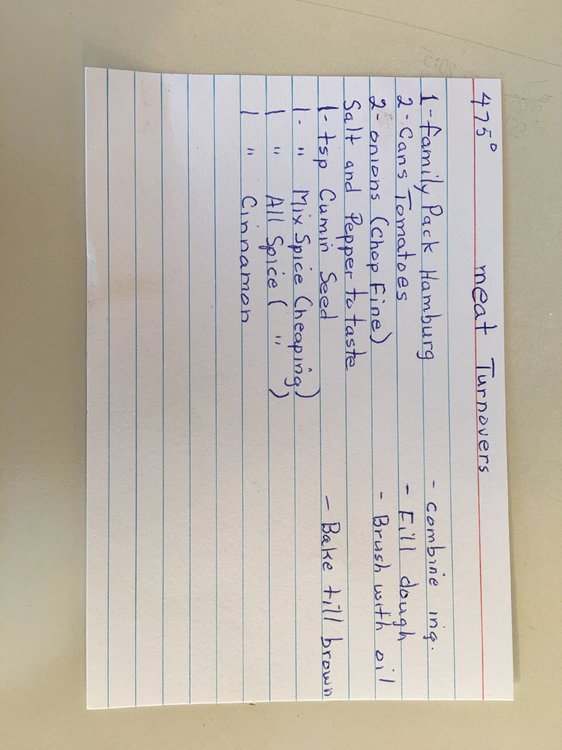 475° meat Turnovers
1-family Pack Hamburg - combine ing.
2-Cans Tomatoes - Fill dough
2-onions (Chop Fine) - Brush with oil
Salt and Pepper to taste
1-tsp Cumin Seed - Bake till brown
1- " Mix Spice (heaping)
1 " All Spice ( " )
1 " Cinnamon